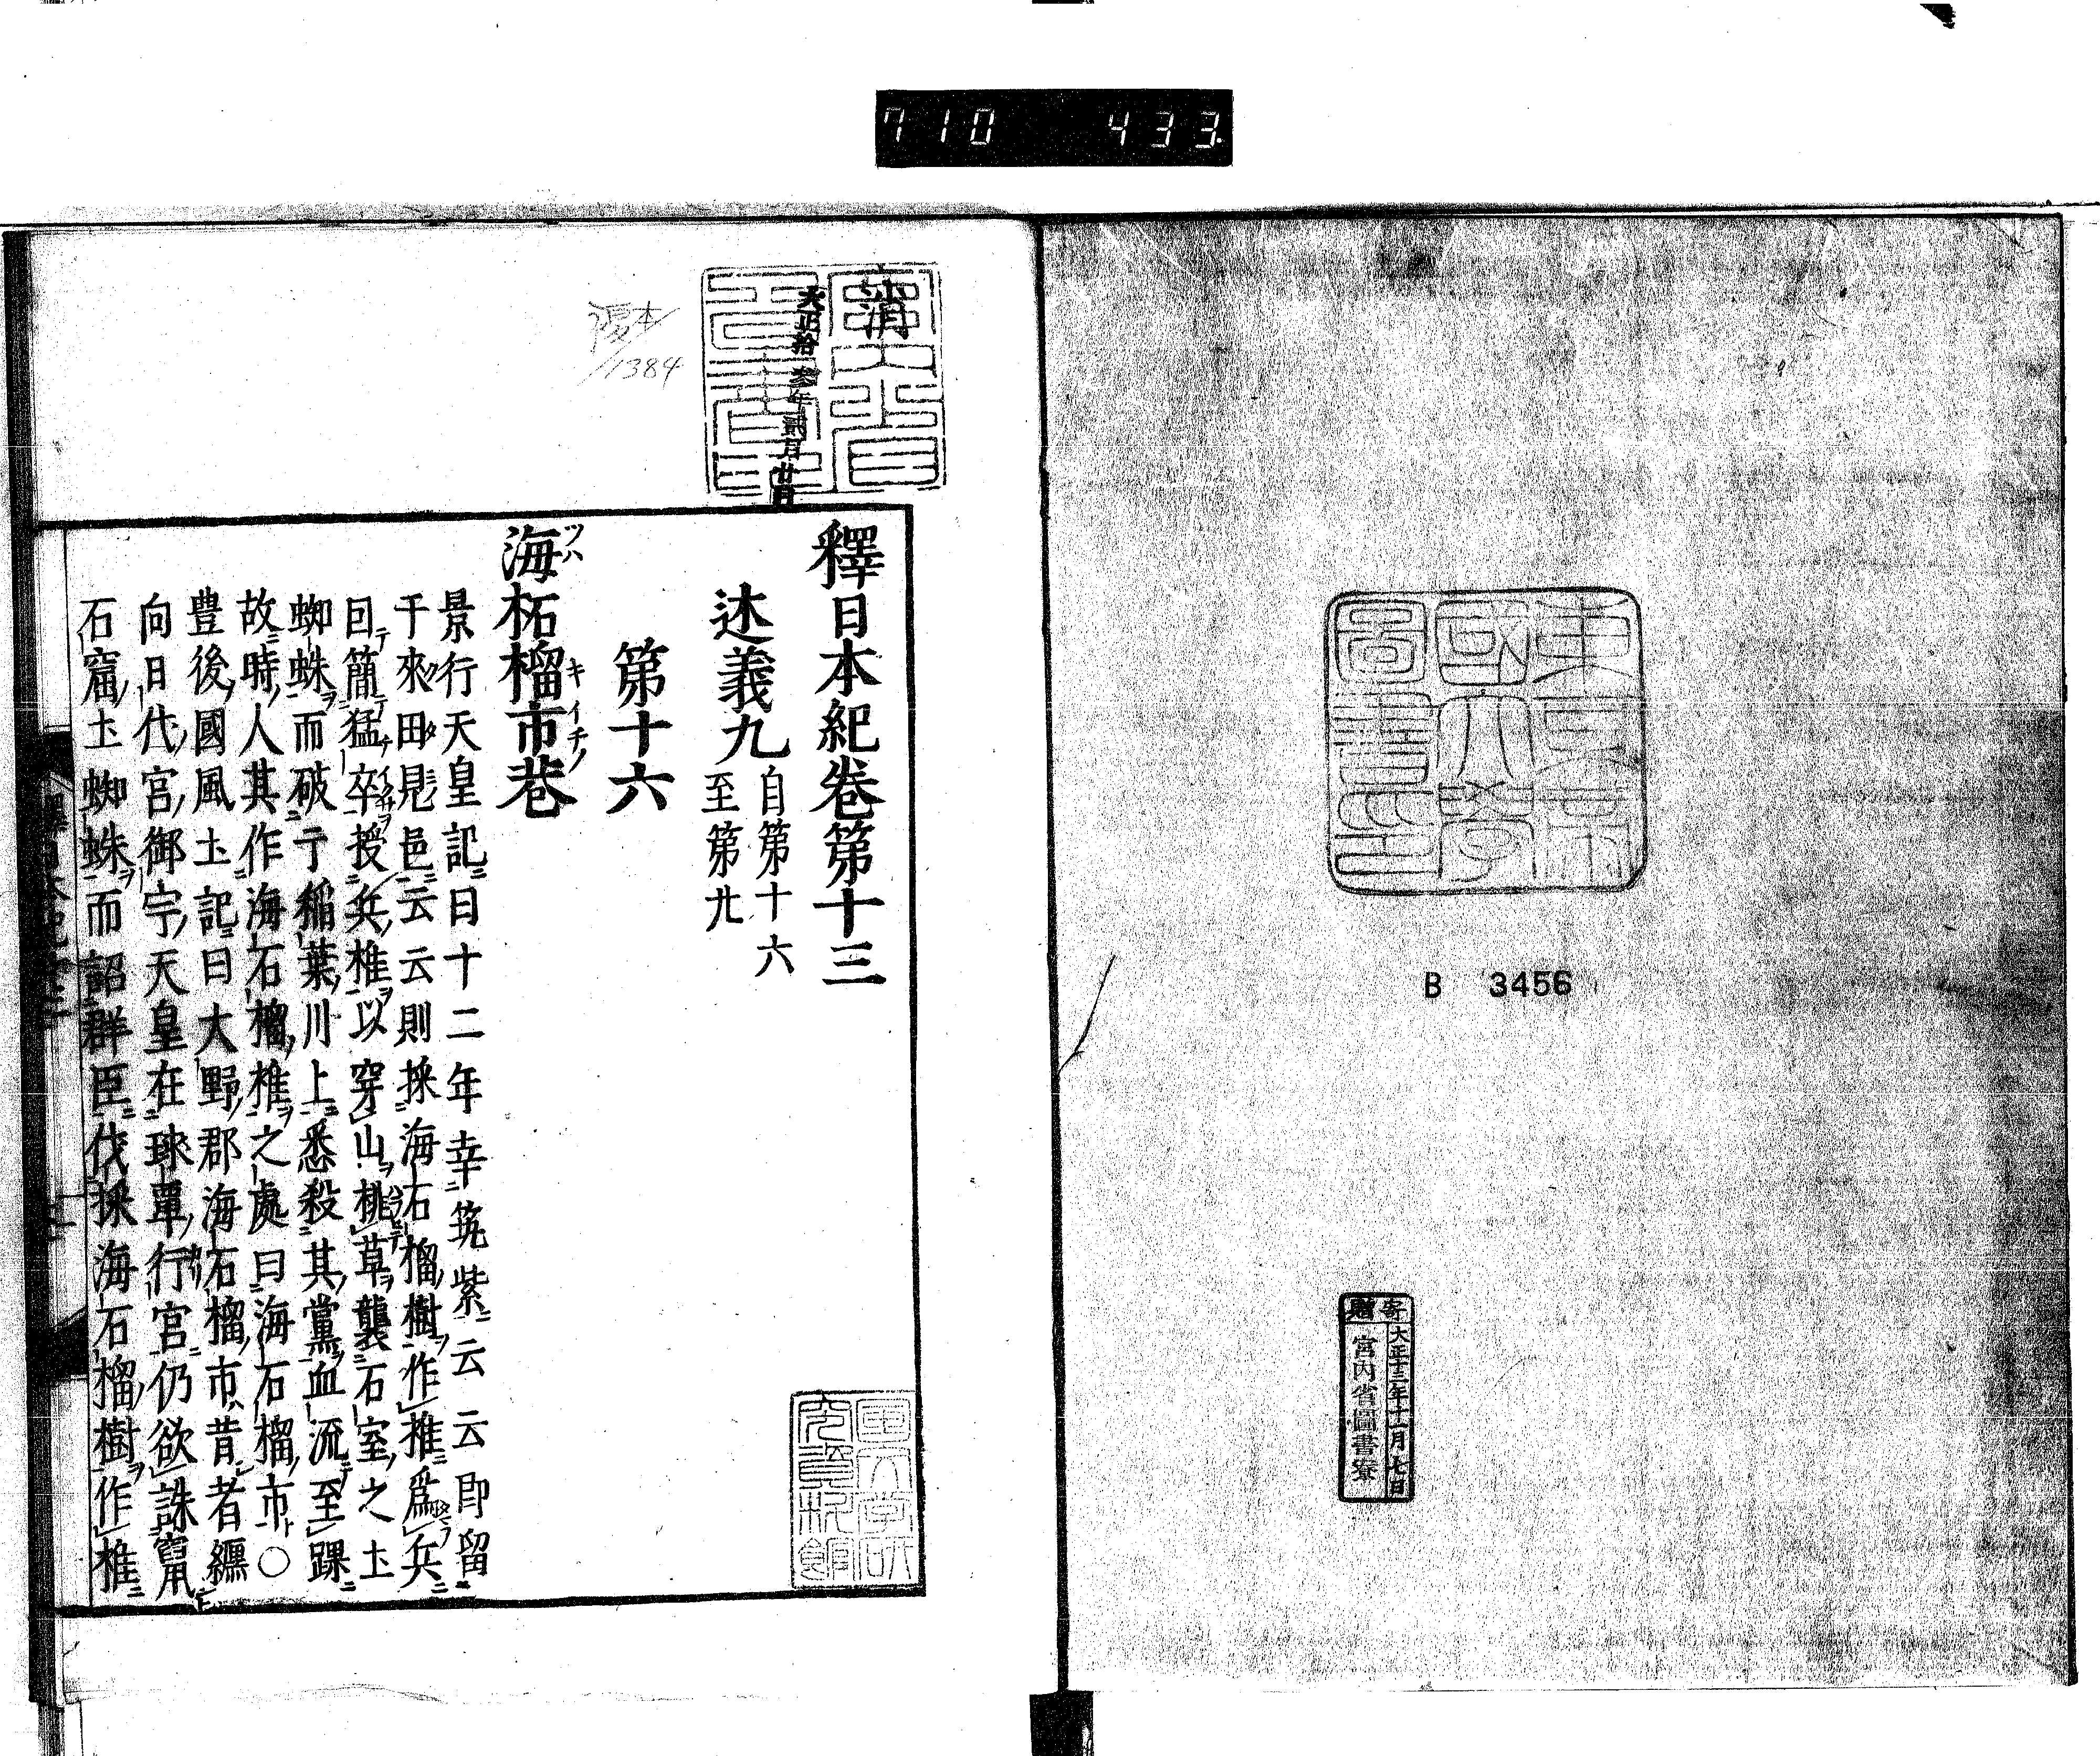 710 433
東京
國大學
圖書印
B 3456
寄贈
大正十三年十一月七日
宮内省圖書寮
消
大正拾參年貳月廿日
1384
釋日本紀卷第十三
述義九 自第十六
至第廿
第十六
海柘榴市巷
ツハ キイチノ
景行天皇記曰十二年幸筑紫云云即留
于來田見邑云云則採海石榴樹作椎爲兵
因簡猛卒授兵椎以穿山排草襲石室之土
蜘蛛而破于稲葉川上悉殺其黨血流至踝
故時人其作海石榴椎之處曰海石榴市○
豊後國風土記曰大野郡海石榴市昔者纒
向日代宮御宇天皇在球覃行宮仍欲誅鼠
石窟土蜘蛛而詔群臣伐採海石榴樹作椎
國文学研
究資料館